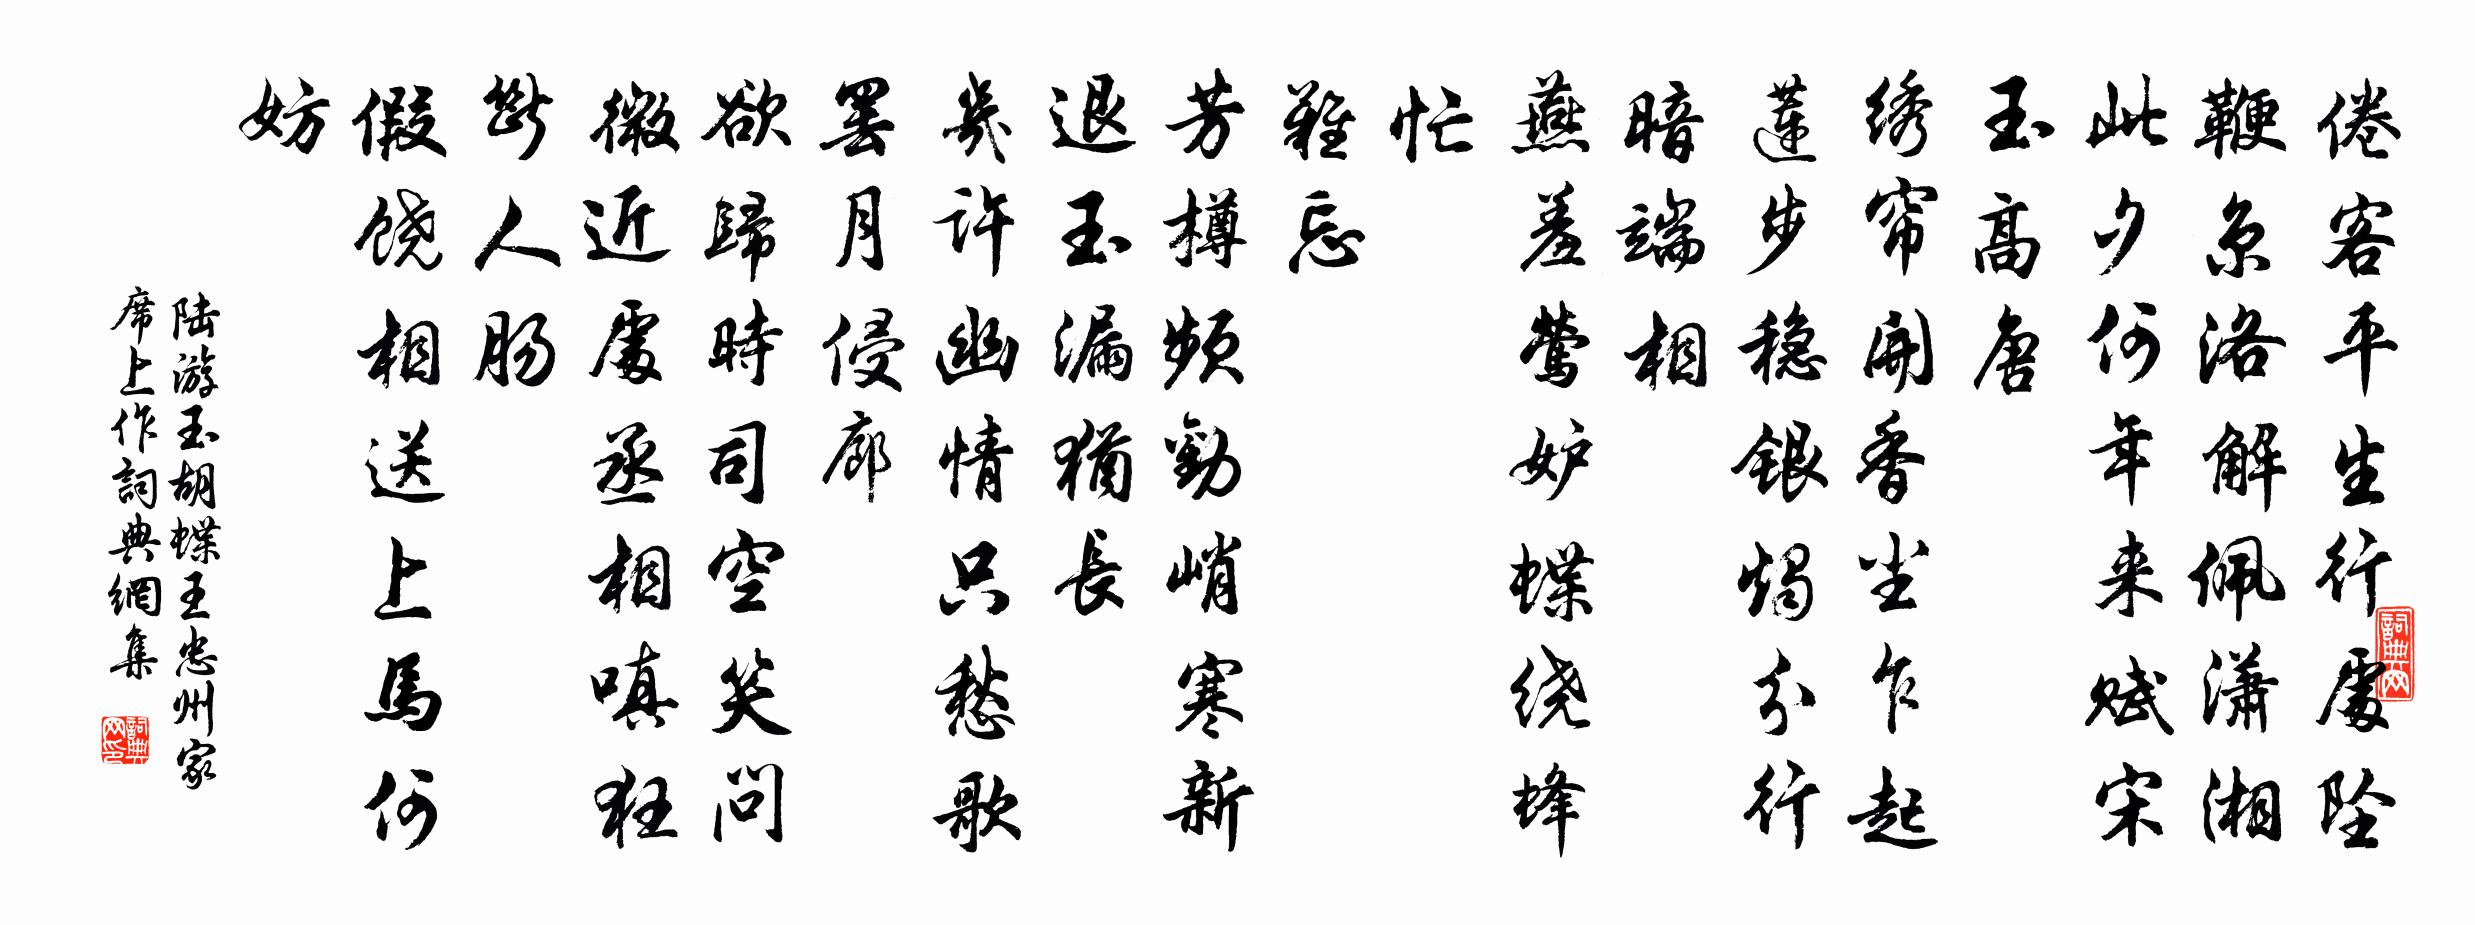 倦客平生行處坠
鞭京洛解佩潇湘
此夕何年来赋宋
玉高唐
绣帘開香尘乍起
莲步稳银燭分行
暗端相
燕羞莺妒蝶绕蜂
忙
難忘
芳樽频勸峭寒新
退玉漏猶長
幾许幽情只愁歌
罢月侵廊
欲歸時司空笑問
微近處丞相嗔狂
斷人肠
假饶相送上馬何
妨
陆游玉胡蝶王忠州家
席上作詞典網集
詞典网
詞典网印